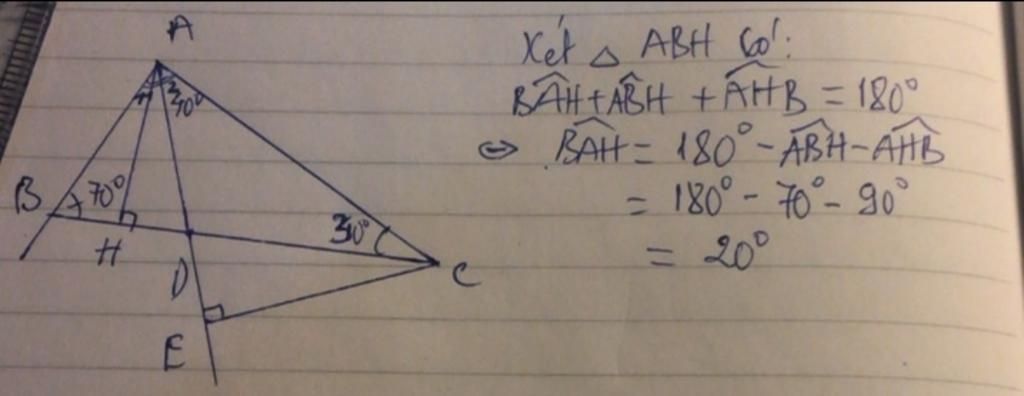 A
40°
B
70°
H
D
30°
C
E
Xét △ ABH có:
BAH + ABH + AHB = 180°
⇔ BAH = 180° - ABH - AHB
= 180° - 70° - 90°
= 20°